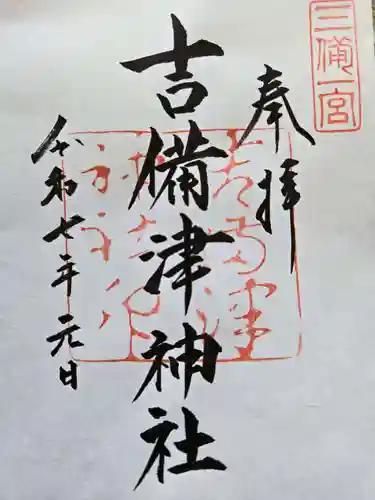 三備一宮
奉拝
吉備津神社
令和七年元日